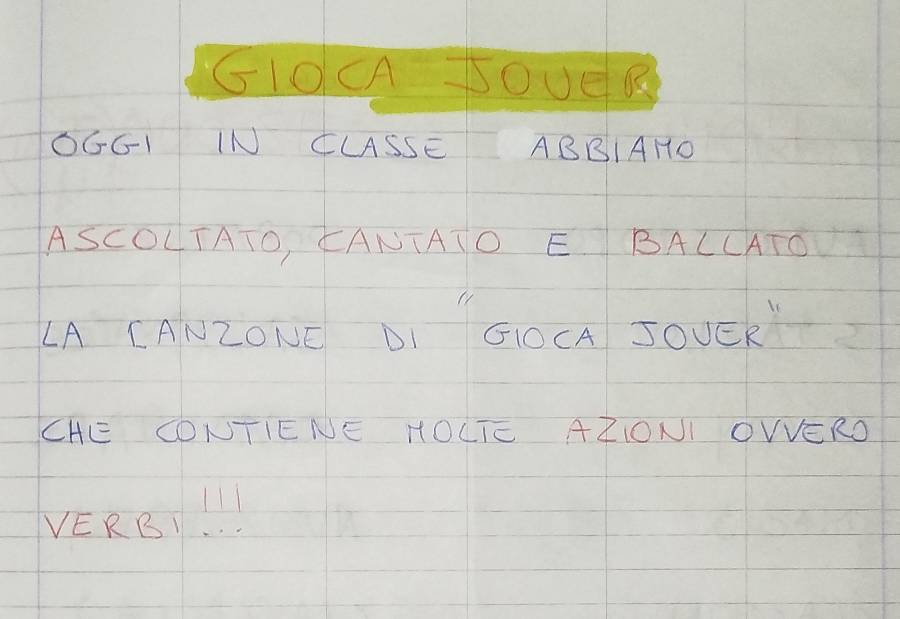 GIOCA JOUER
OGGI IN CLASSE ABBIAMO
ASCOLTATO, CANTATO E BALLATO
LA CANZONE DI "GIOCA JOUER"
CHE CONTIENE MOLTE AZIONI OVVERO
VERBI!!!